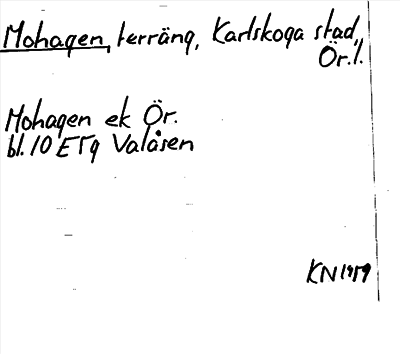 Mohagen, terräng, Karlskoga stad,
Ör.l.
Mohagen ek Ör.
bl. 10 E7g Valåsen
KN 1959